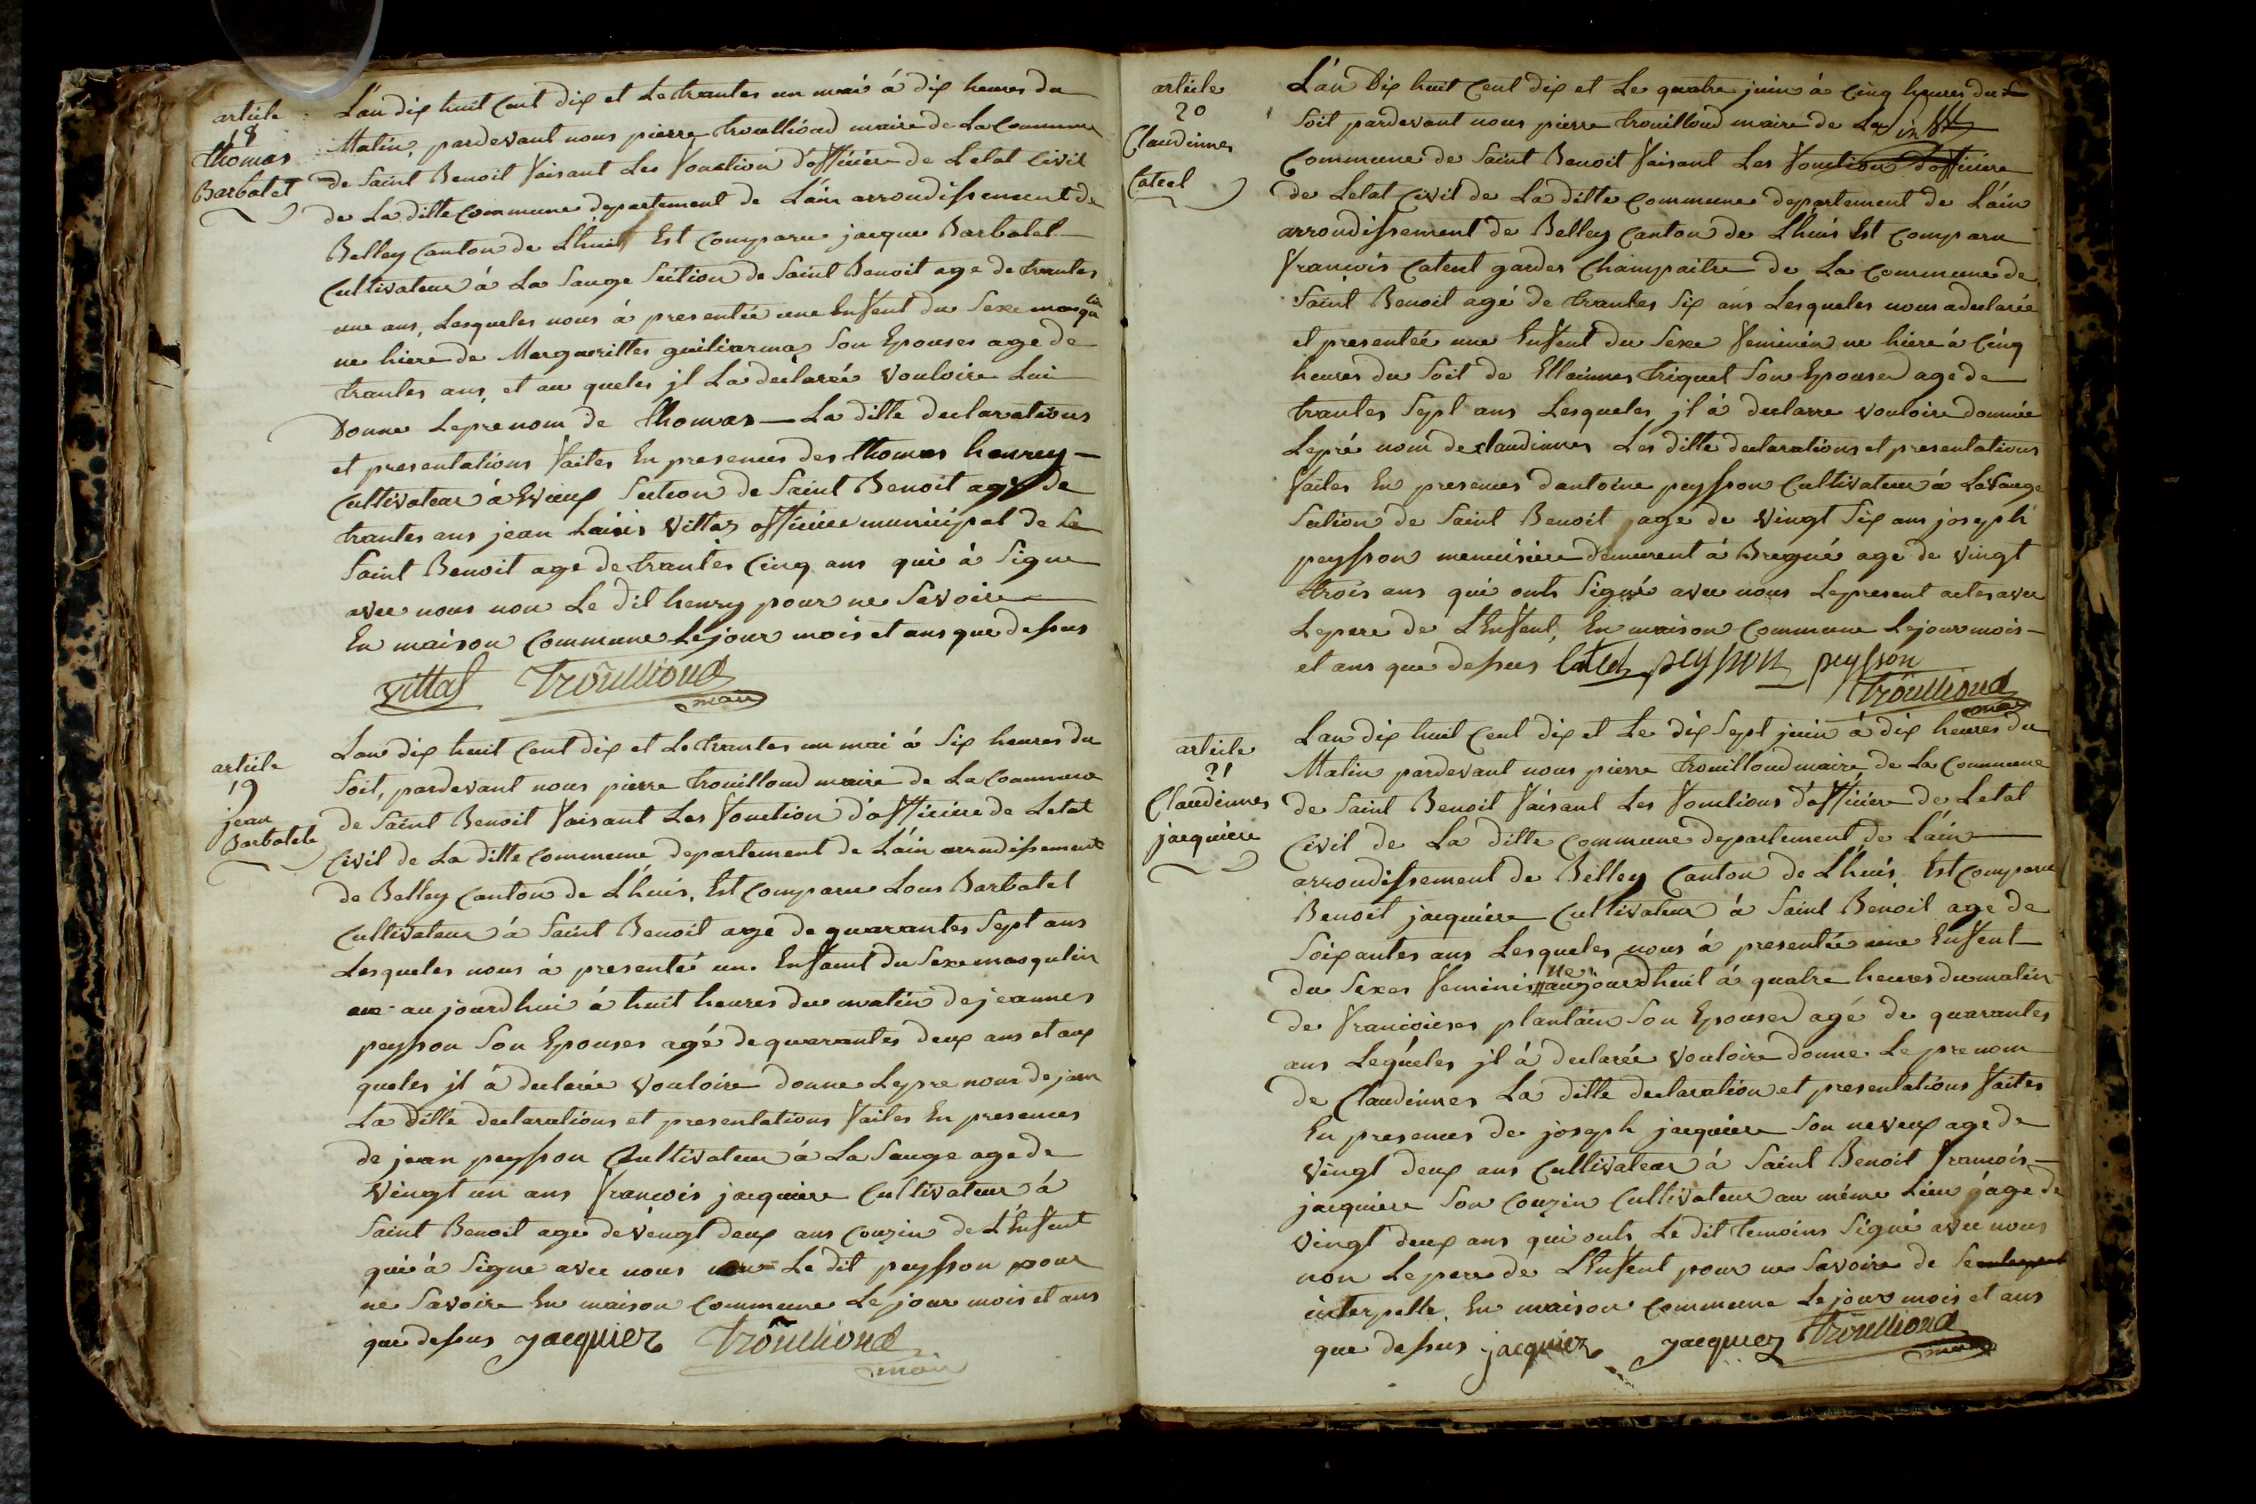 article
18
thomas
Barbatet
L'an dix huit Cent dix et Le trantes un mai à dix heures du
Matin, pardevant nous pierre trouilloud maire de La Commune
de Saint Benoit faisant Les fonction d'officiére de Letat Civil
de La ditte Commune departement de L'áin arrondissement de
Belley Canton de Lhuis, Est Comparu jacque Barbatet
Cultivateur à La Sauge Séction de Saint Benoit age de trantes
une ans, Lesqueles nous à presentée une Enfent du Sexe masqulin
ne hiere de Marguerittes guilliarmas Son Epouses age de
trantes ans, et au queles jl La declarée Vouloire Lui
Donne Leprenom de thomas La ditte declarations
et presentations faites En presences des thomas henrey
Cultivateur à Evieux Section de Saint Benoit agé de
trantes ans jean Laisis Vittaz officiere municipal de Le
Saint Benoit age de trantes Cinq ans qui à Signe
avec nous non Le dit henry pour ne Savoire
En maison Commune Le jour mois et ans que dessus
Vittaz Troüillioud
mair
article
19
jean
Barbatete
L'an dix huit Cent dix et Le trantes un mai á Six heures du
Soit, pardevant nous pierre trouilloud maire de La Commune
de Saint Benoit faisant Les fonction d'officiére de Letat
Civil de La ditte Commune departement de L'áin arrondissement
de Belley Canton de Lhuis, Est Comparu Lous Barbatet
Cultivateur à Saint Benoit age de quarantes Sept ans
Lesqueles nous à presenté un Enfant du Sexe masqulin
au jourdhui à huit heures du matin de jeannes
peysson Son Epouses agé de quarantes deux ans et aux
queles jl à declarée Vouloire donne Lepre nom de jean
La ditte declarations et presentations faites En presences
de jean peysson Cultivateur à La Sauge age de
Vingt un ans francois jacquiere Cultivateur à
Saint Benoit age de vengt deux ans Couzin de L'Enfent
qui à Signe avec nous non Le dit peysson pour
ne Savoire En maison Commune Le jour mois et ans
que dessus jacquier Troüillioud
mair
article
20
Claudinnes
Catect
L'an Dix huit Cent dix et Le quatre juin à Cinq heures du
Soit pardevant nous pierre trouilloud maire de La
Commune de Saint Benoit faisant Les fonction d'officiére
de Letat Civil de La ditte Commune departement de L'áin
arrondissement de Belley Canton de Lhuis Est Comparu
francois Catect gardes Champaitre de La Commune de
Saint Benoit agé de trantes Six ans Lesqueles nous a declarée
et presentée une Enfent du Sexe feminin ne hiere à Cinq
heures du Soit de triquet Son Epouse age de
trantes Sept ans Lesqueles jl à declarre Vouloire donnée
Lepré nom de claudinnes Les ditte declarations et presentations
faites En presences dantoine peysson Cultivateur á La Sauge
Section de Saint Benoit age de Vingt Six ans joseph
peysson menuisiere demeurent à Bregné age de Vingt
trois ans qui onts Signé avec nous Lepresent actes avec
Lepere de L'Enfent, En maison Commune Le jour mois
et ans que dessus Catect peysson peysson
Troüillioud
mair
article
21
Claudinnes
jacquiere
L'an dix huit Cent dix et Le dix Sept juin à dix heures du
Matin pardevant nous pierre trouilloud maire de La Commune
de Saint Benoit faisant Les fonctions d'officiére de Letat
Civil de La ditte Commune departement de L'áin
arrondissement de Belley Canton de Lhuis Est Comparu
Benoit jacquiére Cultivateur à Saint Benoit age de
Soixantes ans Lesqueles nous à presentée une Enfent
du Sexes feminis ne aujourdhuit à quatre heures du matin
de francoises plantain Son Epouse agé de quarantes
ans Leqúeles jl à declarée Vouloire donne Le prenom
de Claudinnes La ditte declaration et presentations faites
En presences de joseph jacquiere Son neveux age de
Vingt deux ans Cultivateur à Saint Benoit francois
jacquiere Son Couzin Cultivateur au méme Lieu áge de
Vingt deux ans qui onts Le dit temoins Signé avec nous
non Lepere de L'Enfent pour ne Savoire de Se
interpelle. En maison Commune Le jour mois et ans
que dessus jacquier jacquier Troüillioud
mair